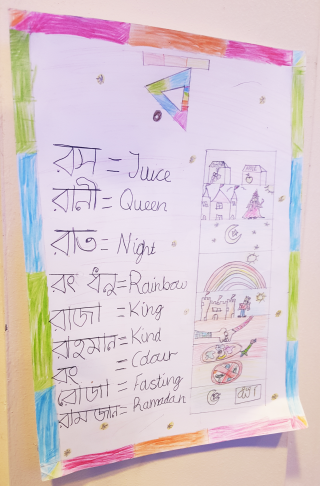 র
রস = Juice
রানী = Queen
রাত = Night
রং ধনু = Rainbow
রাজা = King
রাহমান = Kind
রং = Colour
রোজা = Fasting
রামজান = Ramadan